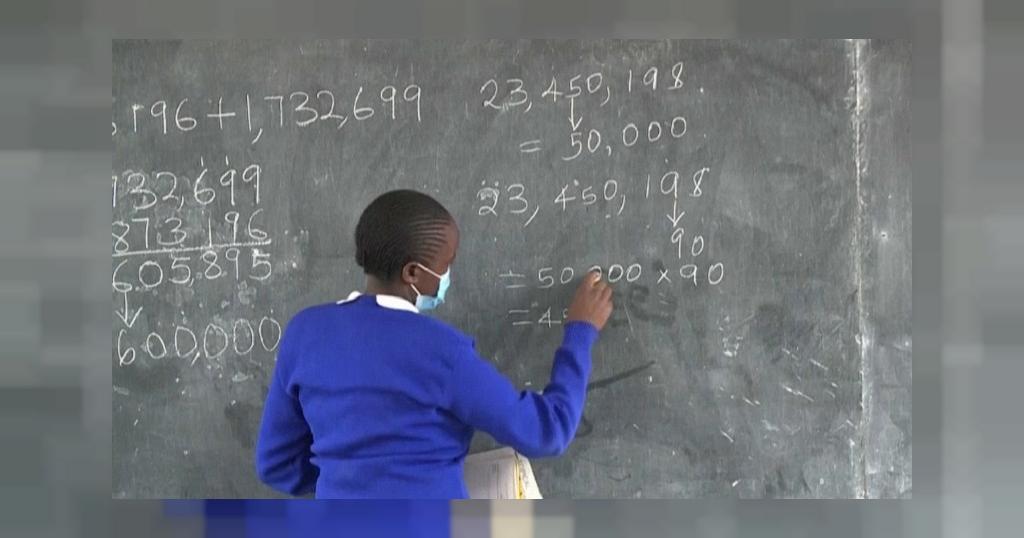 ,196 + 1,732,699
732,699
873,196
605,895
600,000
23,450,198.
= 50,000
23,450,198
90
= 50,000 × 90
= 45